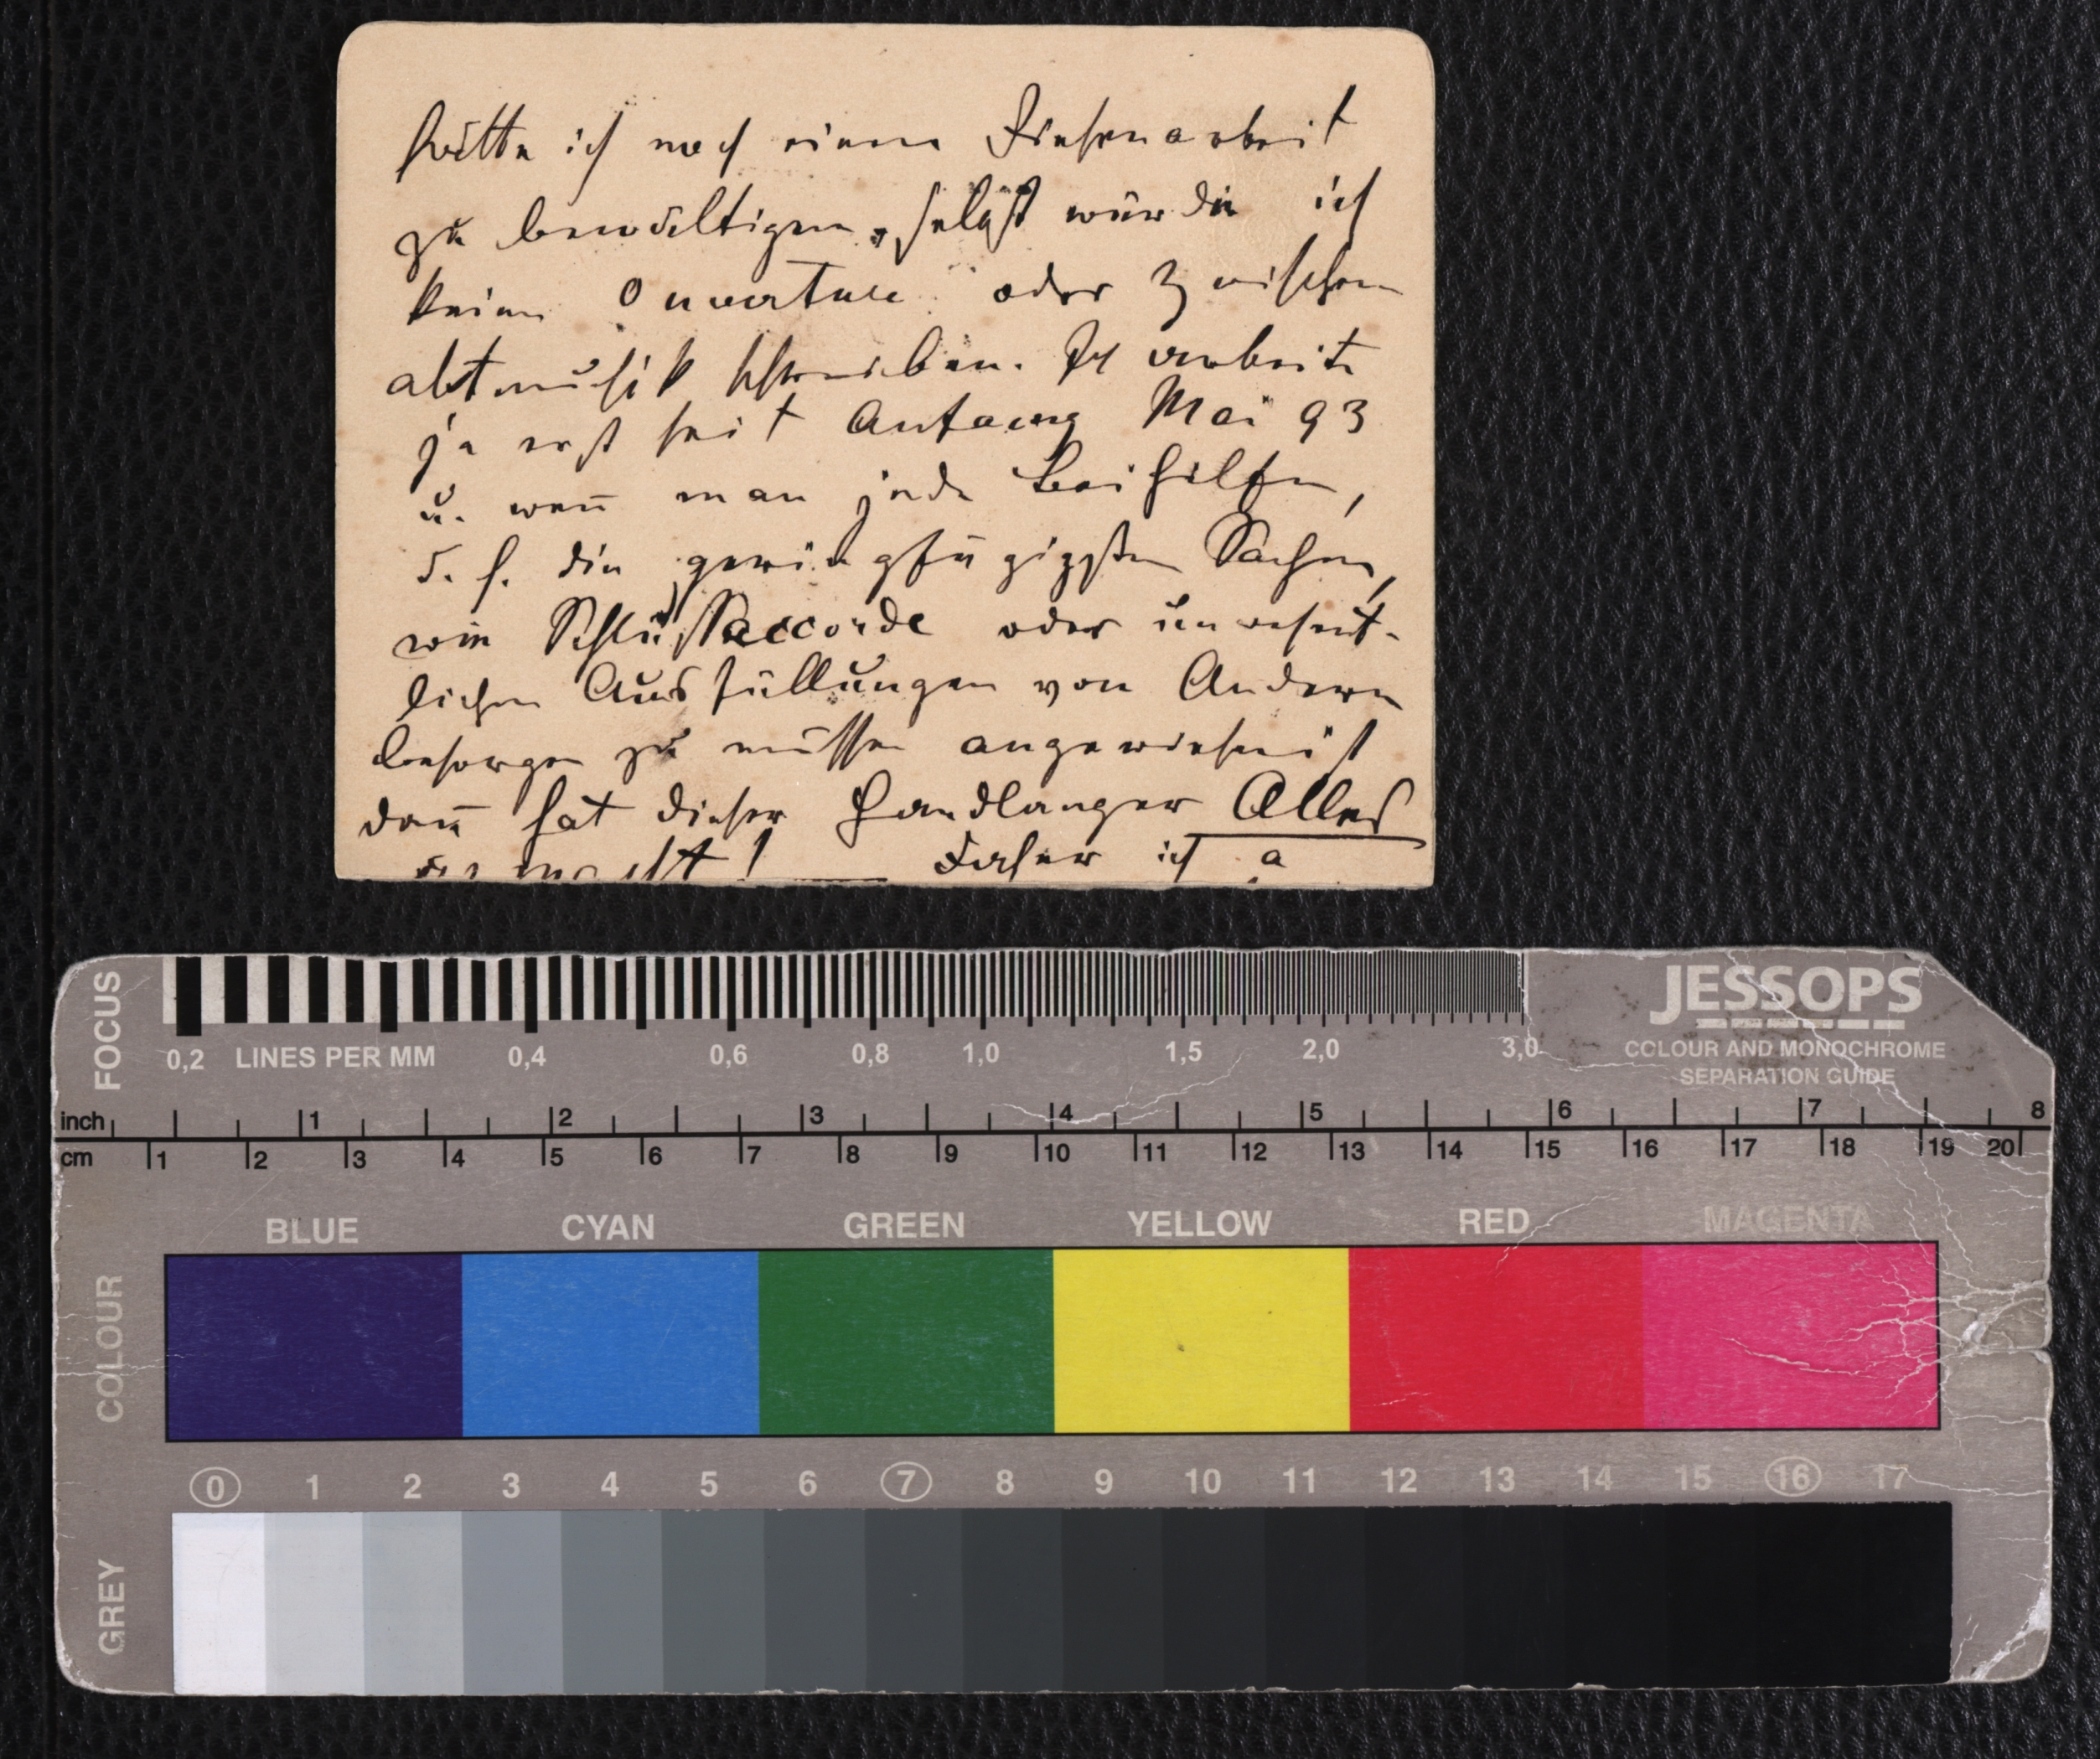 hätte ich noch eine Riesenarbeit
zu bewältigen, selbst würde ich
keine Ouverture oder Zwischen
aktmusik schreiben. Ich arbeite
ja erst seit Anfang Mai 93
u. weñ man jede Beihilfe,
d. h. die geringfügigsten Sachen,
wie Schlußaccorde oder unwesent-
lichen Ausfüllungen von Andern
besorgen zu müssen angewiesen ist
dañ hat dieser Handlanger Alles
gemacht! Daher ich a
FOCUS
0,2 LINES PER MM 0,4 0,6 0,8 1,0 1,5 2,0 3,0
JESSOPS
COLOUR AND MONOCHROME
SEPARATION GUIDE
inch 1 2 3 4 5 6 7 8
cm 1 2 3 4 5 6 7 8 9 10 11 12 13 14 15 16 17 18 19 20
COLOUR
BLUE CYAN GREEN YELLOW RED MAGENTA
GREY
0 1 2 3 4 5 6 7 8 9 10 11 12 13 14 15 16 17